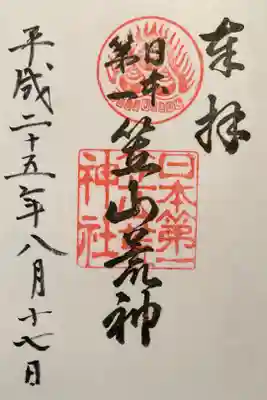 奉拝
日本
第一
笠山荒神
日本第一
笠山荒
神社
平成二十五年八月十八日